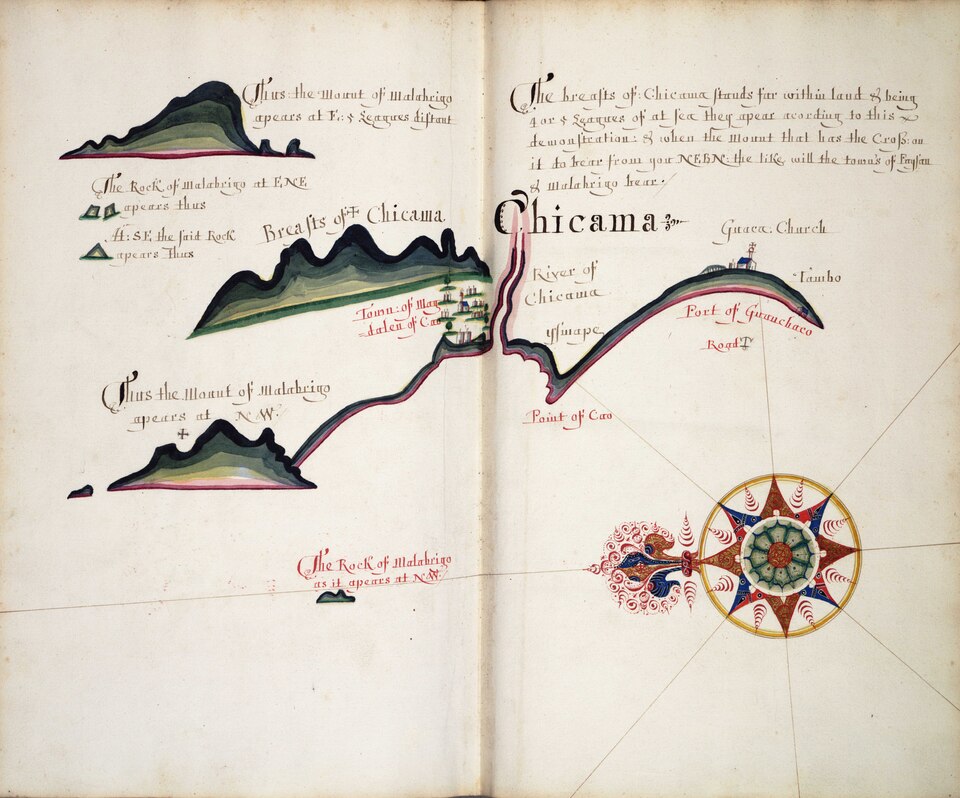 Thus: the Mount of Malabrigo
apears at E: 5 Leagues distant
The Rock of Malabrigo at ENE
apears thus
At: SE the said Rock
apears thus
Breasts of Chicama
Town: of Mag
dalen of Cao
Thus the Mount of Malabrigo
apears at NW:
The Rock of Malabrigo
as it apears at NW
The breasts of: Chicama stands far within land & being
4 or 5 Leagues of at sea they apear acording to this
demonstration: & when the Mount that has the Cross: on
it to bear from you NEBN: the like will the town's of Paysan
& Malabrigo bear.
Chicama
River of
Chicama
Guaca. Church
Tambo
Port of Guanchaco
Road
Point of Cao